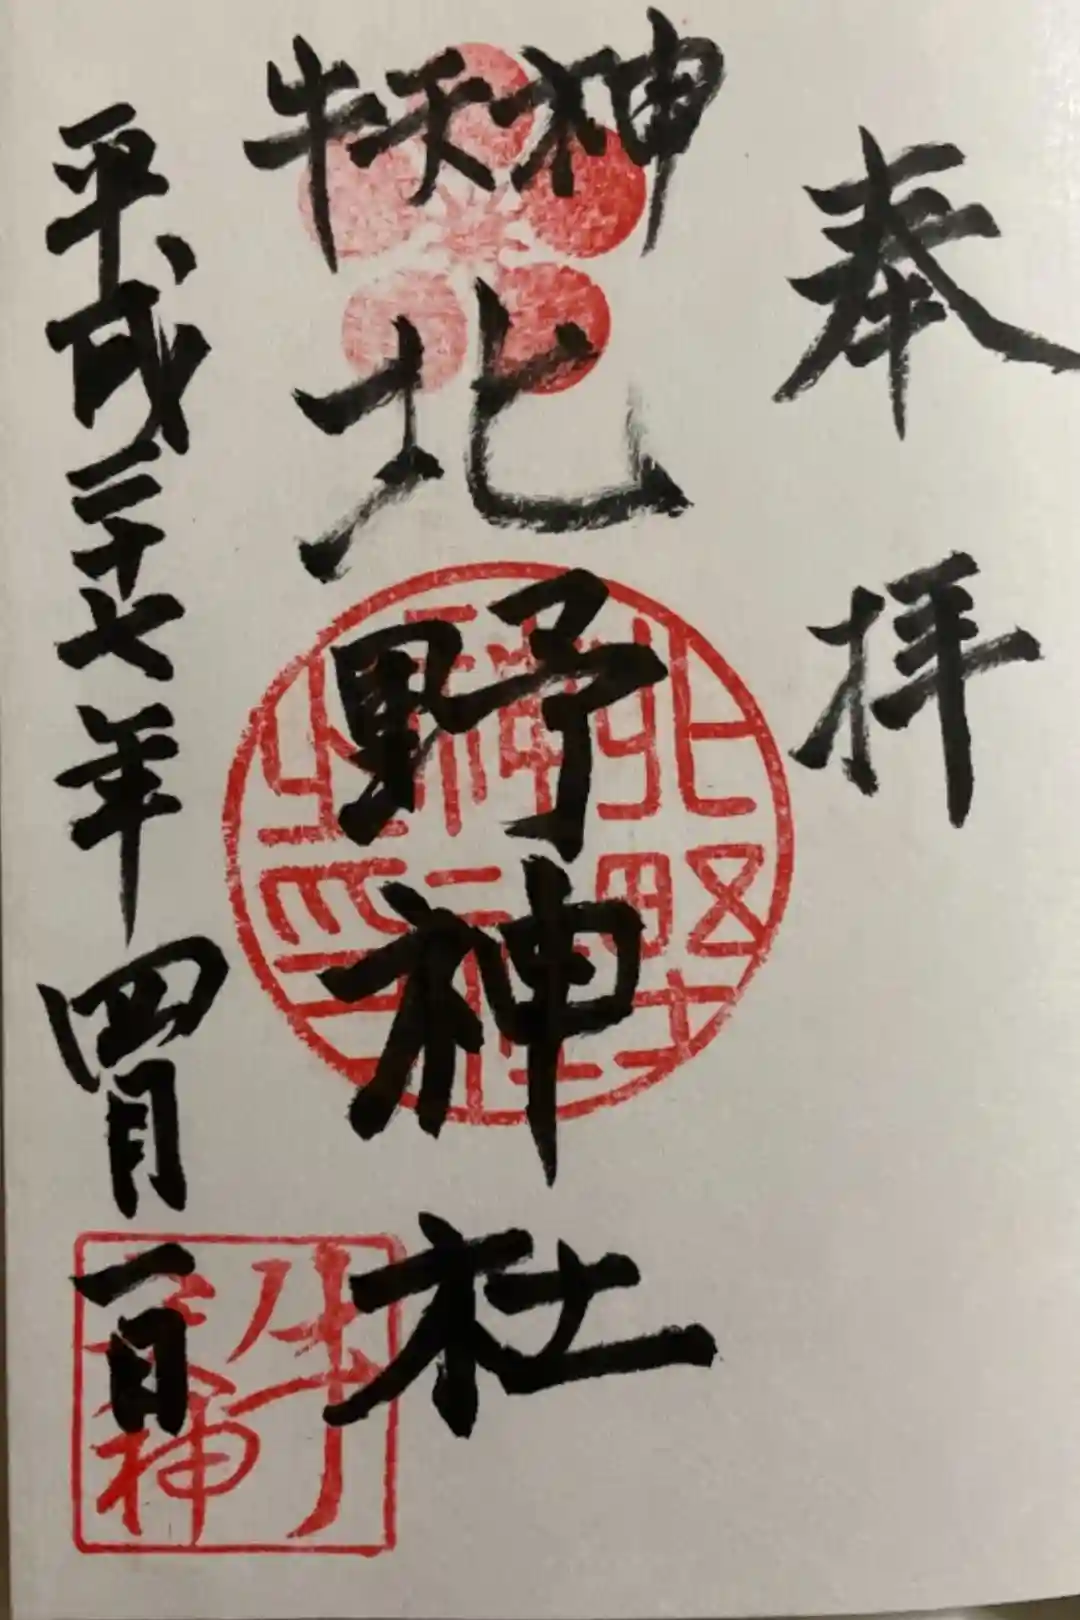 奉拝
牛天神
北野神社
平成二十七年四月一日
北野神社之印
牛天神